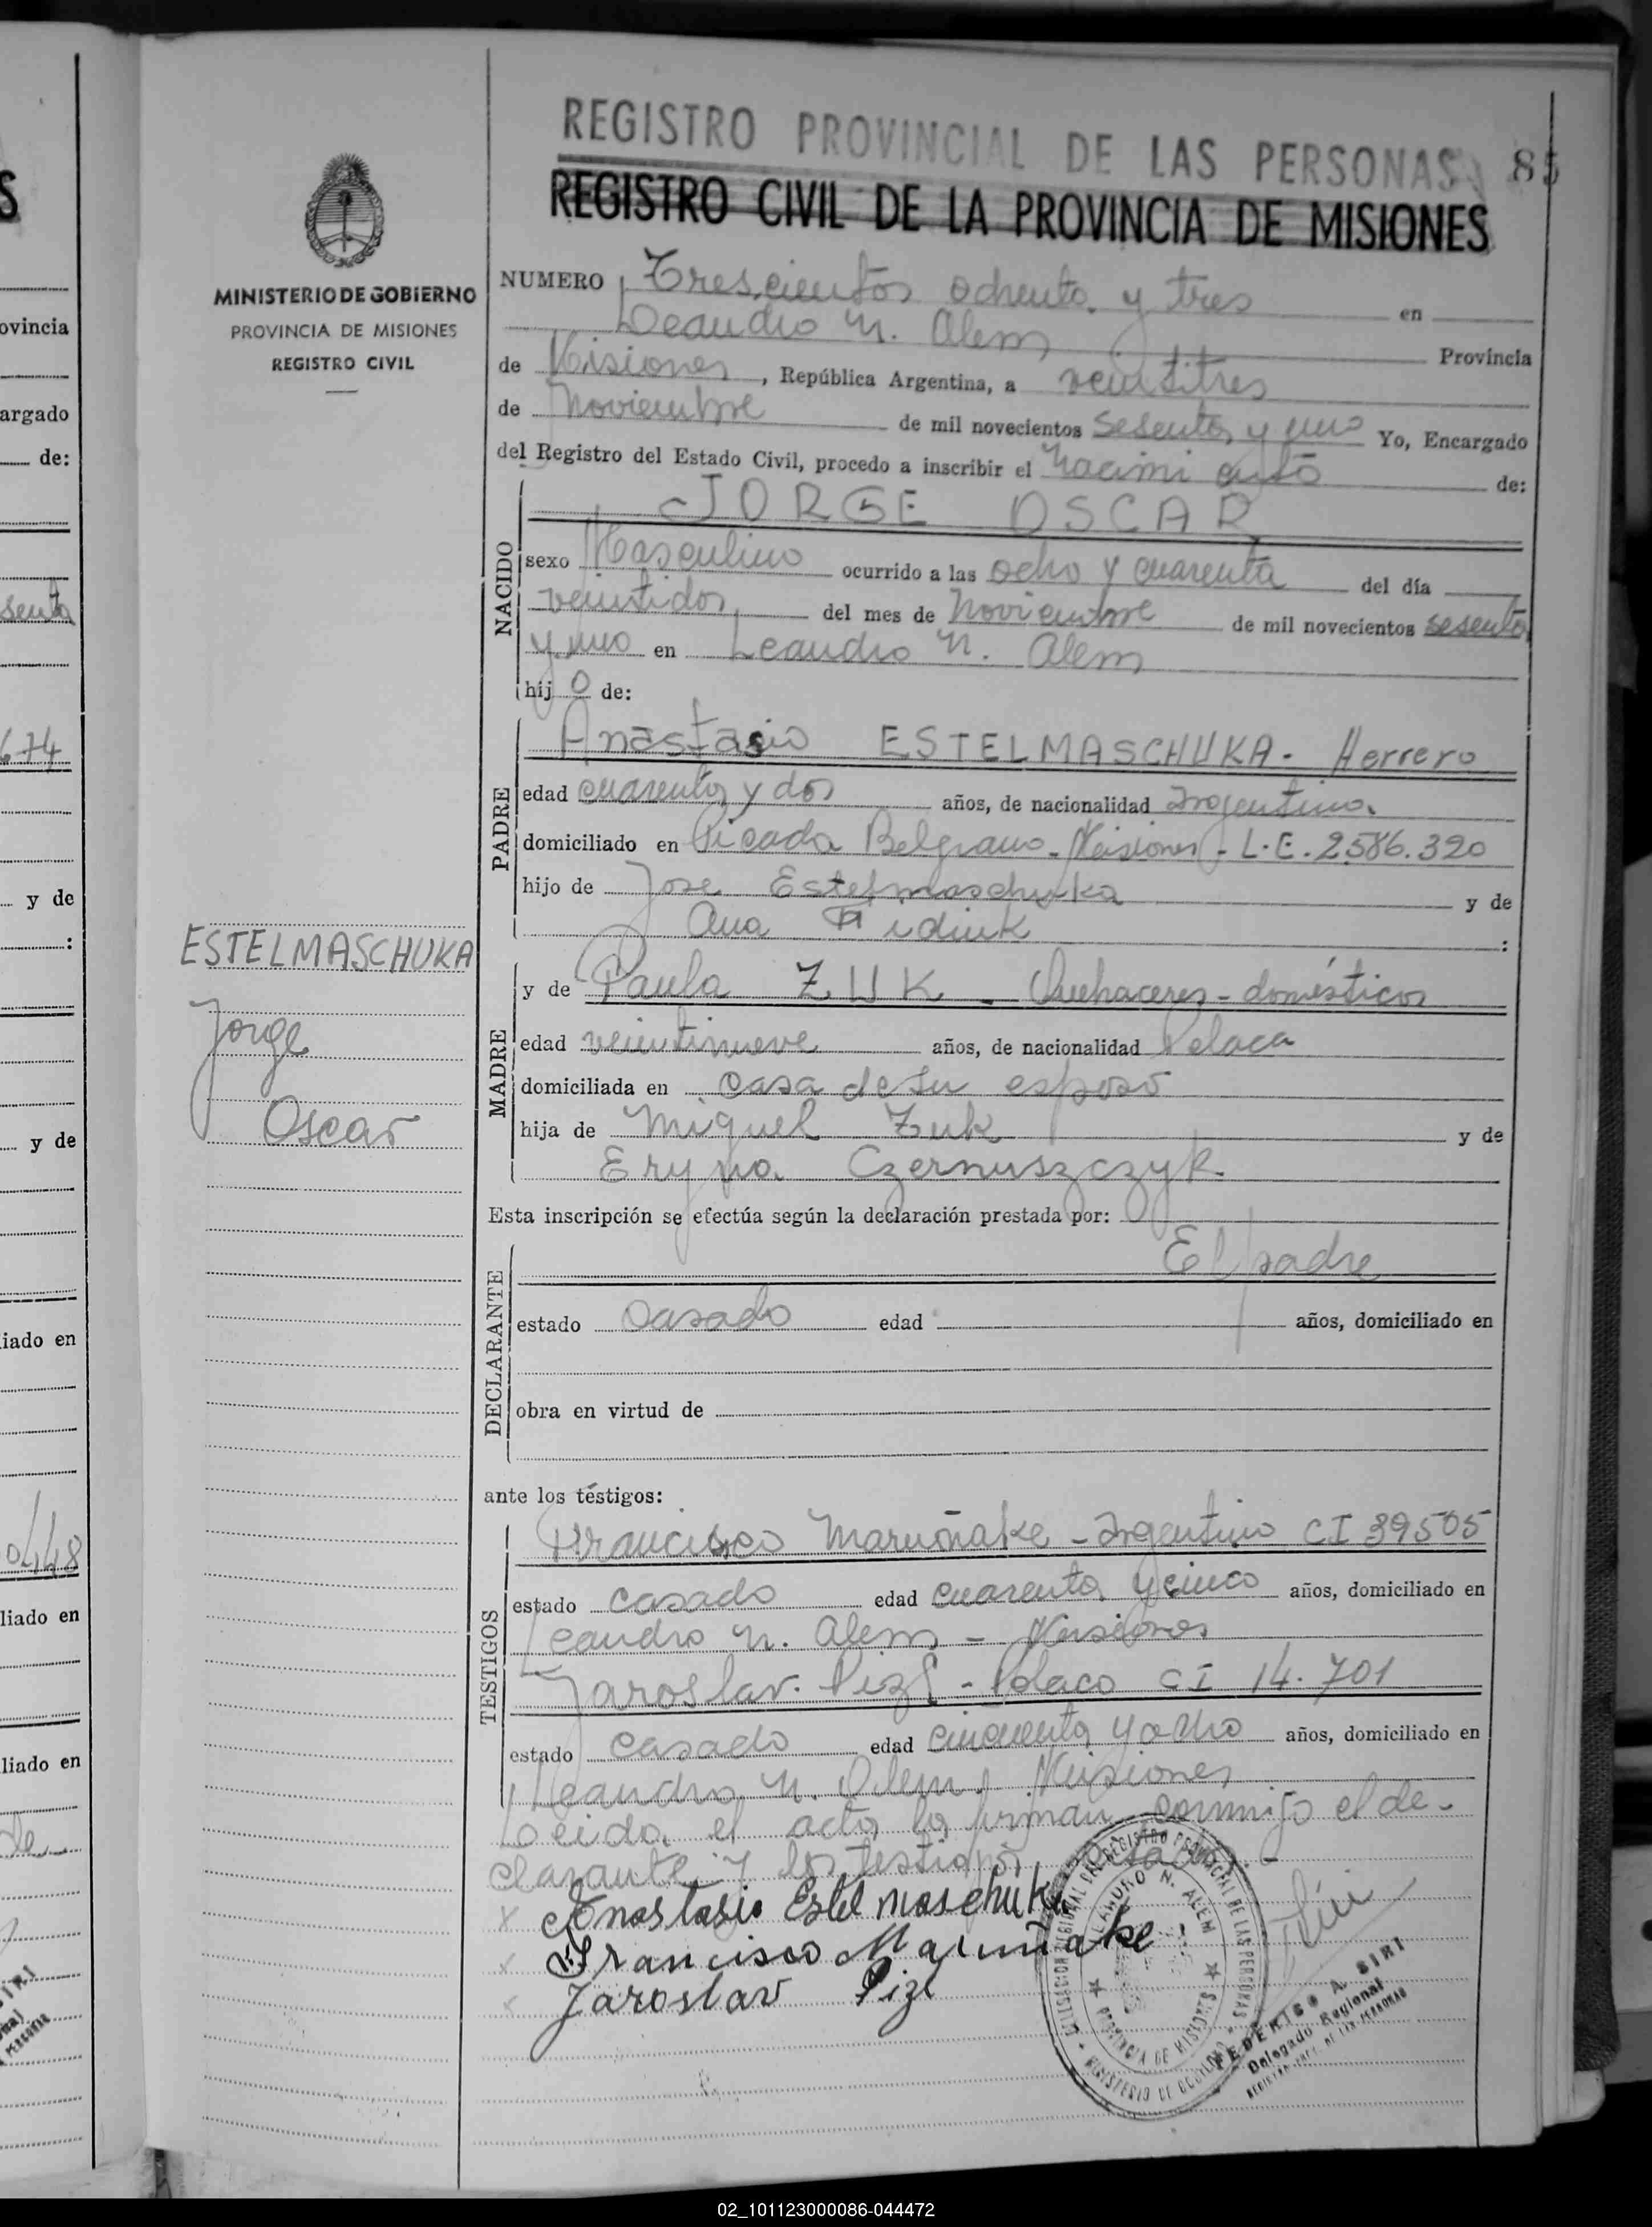 REGISTRO PROVINCIAL DE LAS PERSONAS 85
REGISTRO CIVIL DE LA PROVINCIA DE MISIONES
MINISTERIO DE GOBIERNO
PROVINCIA DE MISIONES
REGISTRO CIVIL
NUMERO Trescientos ochenta y tres en
Leandro N. Alem Provincia
de Misiones, República Argentina, a veintitres
de Noviembre de mil novecientos sesenta y uno Yo, Encargado
del Registro del Estado Civil, procedo a inscribir el Nacimiento de:
NACIDO
JORGE OSCAR
sexo Masculino ocurrido a las ocho y cuarenta del día
veintidos del mes de Noviembre de mil novecientos sesenta
y uno en Leandro N. Alem
hijo de:
PADRE
Anastasio ESTELMASCHUKA - Herrero
edad cuarenta y dos años, de nacionalidad Argentina
domiciliado en Picada Belgrano - Misiones - L.E. 2586.320
hijo de Jose Estelmaschuka y de
Ana :
ESTELMASCHUKA
Jorge
Oscar
MADRE
y de Paula ZUK - Quehaceres - domésticos
edad veintinueve años, de nacionalidad Polaca
domiciliada en casa de su esposo
hija de Miguel Zuk y de
Eryna Czernuszczyk
Esta inscripción se efectúa según la declaración prestada por:
DECLARANTE
El padre
estado Casado edad años, domiciliado en
obra en virtud de
ante los téstigos:
TESTIGOS
Francisco Maruñake - Argentino CI 39505
estado casado edad cuarenta y cinco años, domiciliado en
Leandro N. Alem - Misiones
Jaroslav Pizl - Polaco CI 14.701
estado casado edad cincuenta y ocho años, domiciliado en
Leandro N. Alem, Misiones
Leida el acta la firman conmigo el de-
clarante y los testigos
Anastasio Estelmaschuka
Francisco Maruñake
Jaroslav Pizl
LEANDRO N. ALEM
PROVINCIA DE MISIONES
FEDERICO A. SIRI
Delegado Regional
02_101123000086-044472